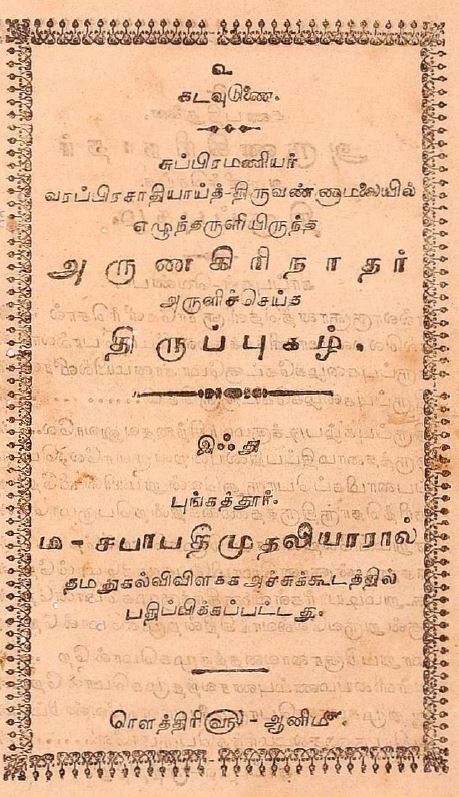 உ
கடவுடுணை.
சுப்பிரமணியர்
வரப்பிரசாதியாய்த்-திருவண்ணாமலையில்
எழுந்தருளியிருந்த
அருணகிரிநாதர்
அருளிச்செய்த
திருப்புகழ்.
இஃது
புங்கத்தூர்.
ம-சபாபதிமுதலியாரால்
தமதுகல்விவிளக்க அச்சுக்கூடத்தில்
பதிப்பிக்கப்பட்டது.
ரௌத்திரி௵-ஆனி௴.